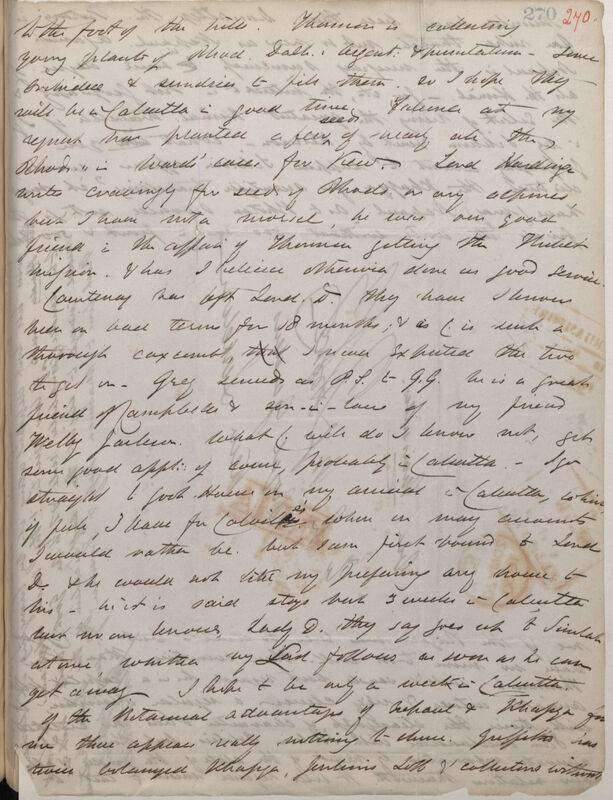 270 270.
to the foot of the hills. Thomson is collecting
young plants of Rhod. Dalh: argent. & - Some
Orchideae & sundries to fill them. so I hope they
will be in Calcutta in good time. Falconer at my
request has planted a few seeds of nearly all the
Rhods in Wards' cases for Kew. Lord Hardinge
writes cravingly for seed of Rhods or any alpines,
but I have not a morsel, he was our good
friend in the affair of Thomson getting the Thibet
mission. & has I believe otherwise done us good service.
Courtenay has left Lord. D. they have I know
been on bad terms for 18 months; & as C. is such a
thorough coxcomb, that I never expected the two
to get on - Grey succeeds as P.S. to G.G. he is a great
friend of Campbells & son-in-law of my friend
Welby Jackson. What C. will do I know not, get
some good appt: of course, probably in Calcutta. - I go
straight to Govt House on my arrival in Calcutta,
if full, I have for Colvile's where on many accounts
I would rather be. but I am first bound to Lord
D. & he would not like my preferring any house to
his - He it is said stays but 3 weeks in Calcutta
but no one knows, Lady D. they say goes up to Simlah
at once, whither my Lord follows as soon as he can
get away I hope to be only a week in Calcutta.
Of the Botanical advantage of Nepaul & Khasya for
me there appears really nothing to chuse. Griffith has
twice botanized Khasya, Jenkins sent collectors without